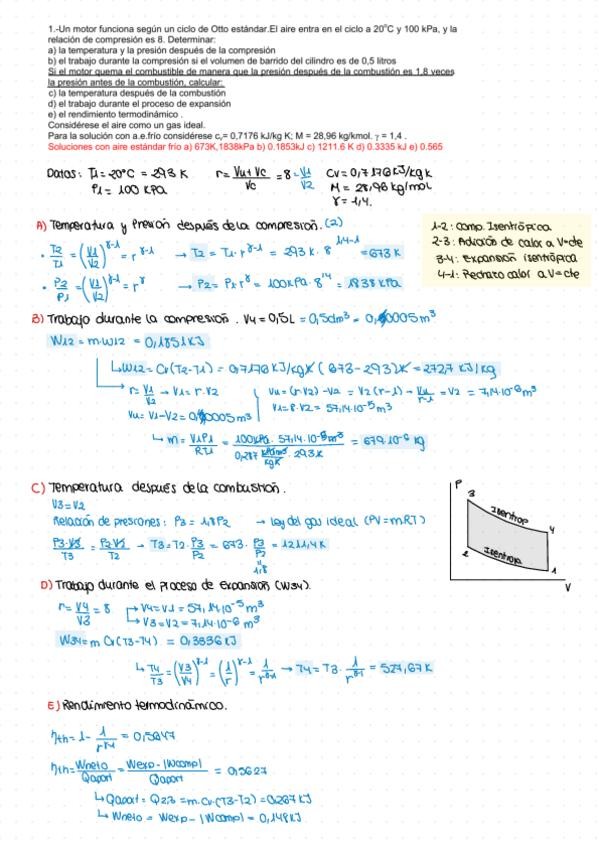 1.-Un motor funciona según un ciclo de Otto estándar.El aire entra en el ciclo a 20°C y 100 kPa, y la
relación de compresión es 8. Determinar:
a) la temperatura y la presión después de la compresión
b) el trabajo durante la compresión si el volumen de barrido del cilindro es de 0,5 litros
Si el motor quema el combustible de manera que la presión después de la combustión es 1,8 veces
la presión antes de la combustión, calcular:
c) la temperatura después de la combustión
d) el trabajo durante el proceso de expansión
e) el rendimiento termodinámico .
Considérese el aire como un gas ideal.
Para la solución con a.e.frío considérese cv= 0,7176 kJ/kg K; M = 28,96 kg/kmol. γ = 1,4 .
Soluciones con aire estándar frío a) 673K,1838kPa b) 0.1853kJ c) 1211.6 K d) 0.3335 kJ e) 0.565
Datos: T1=20°C = 293 K r= Vu+Vc/Vc = 8 = V1/V2 Cv=0,7176KJ/kg K
P1= 100 KPa M = 28,96 kg/mol
γ= 1,4.
A) Temperatura y Presión después de la compresión. (2)
• T2/T1 = (V1/V2)^γ-1 = r^γ-1 → T2= T1· r^γ-1 = 293 K· 8^1,4-1 =673 K
• P2/P1 = (V1/V2)^γ = r^γ → P2= P1·r^γ = 100KPa· 8^1,4 = 1838 KPa
1-2: comp. Isentrópica
2-3: Adición de calor a V=cte
3-4: Expansión isentrópica
4-1: Rechazo calor a V=cte
B) Trabajo durante la compresión. Vu = 0,5L = 0,5dm³ - 0,0005m³
W12= m·w12 = 0,1851KJ
↳w12= Cv(T2-T1) = 0,7176 KJ/kgK (673-293)K = 272,7 KJ/kg
→ r= V1/V2 → V1= r·V2
Vu= V1-V2= 0,0005m³
Vu= (r·V2) -V2 = V2(r-1) → Vu/r-1 = V2 = 7,14·10⁻⁵m³
V1= 8·V2 = 57,14·10⁻⁵m³
↳ m= V1P1/RT1 = 100KPa· 57,14·10⁻⁵m³ / 0,287 KPam³/KgK · 293K = 679·10⁻⁶ kg
C) Temperatura después de la combustión.
V3=V2
Relación de presiones: P3= 1,8P2 → Ley del gas ideal (PV=mRT)
P3·V3/T3 = P2V2/T2 → T3=T2· P3/P2 = 673· P3/P2 = 1211,4K
1,8
P
3
Isentrop
4
2
Isentrop.
1
V
D) Trabajo durante el proceso de expansión (W34).
r= V4/V3 = 8
→V4=V1= 57,14·10⁻⁵m³
→V3=V2= 7,14·10⁻⁵ m³
W34=m Cv(T3-T4) = 0,3336 KJ
↳ T4/T3 = (V3/V4)^γ-1 = (1/r)^γ-1 = 1/r^γ-1 → T4= T3· 1/r^γ-1 = 527,67K
E) Rendimiento termodinámico.
ηth= 1- 1/r^γ-1 = 0,5647
ηth= Wneto/Qaport = Wexp- |Wcomp|/Qaport = 0,5627
↳Qaport= Q2,3 =m·Cv·(T3-T2) =0,267KJ
↳ Wneto = Wexp - |Wcomp| = 0,148KJ